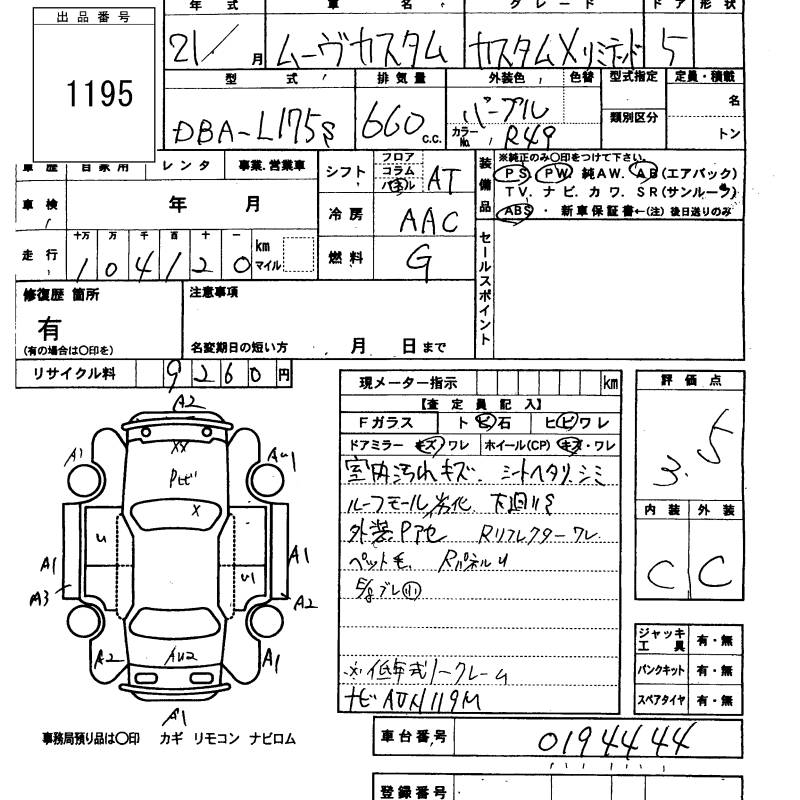 出品番号
1195
年式 車名 グレード ドア 形状
21/ 月 ムーヴカスタム カスタムXリミテッド 5
型式 排気量 外装色 色替 型式指定 定員・積載
DBA-L175S 660 C.C. パープル 名
カラーNo. R49 類別区分 トン
車歴 自家用 レンタ 事業.営業車
シフト フロア コラム パネル AT
装備品 ※純正のみ○印をつけて下さい。
PS PW 純AW. AB(エアバック)
TV. ナビ. カワ. SR(サンルーフ)
ABS. 新車保証書←(注)後日送りのみ
車検 年 月
冷房 AAC
走行 十万 万 千 百 十 一 km マイル
104120
燃料 G
セールスポイント
修復歴 箇所
有
(有の場合は○印を)
注意事項
名変期日の短い方 月 日まで
リサイクル料 9260円
現メーター指示 km
【査定員記入】
Fガラス トビ石 ヒビワレ
ドアミラー キズ ワレ ホイール(CP) キズ・ワレ
室内汚れキズ. シートヘタリ.シミ
ルーフモール劣化 下回りS
外装P他 Rリフレクターワレ
ペット毛. RパネルU
E/g ブレ小
※低年式ノークレーム
ナビAUN119M
評価点
3.5
内装 外装
C C
ジャッキ工具 有・無
パンクキット 有・無
スペアタイヤ 有・無
A2
A1 XX AU1
Pセビ
X
U
A1 U1 A1
A3 A2
A2 AU2 A1
A1
事務局預り品は○印 カギ リモコン ナビロム
車台番号 0194444
登録番号